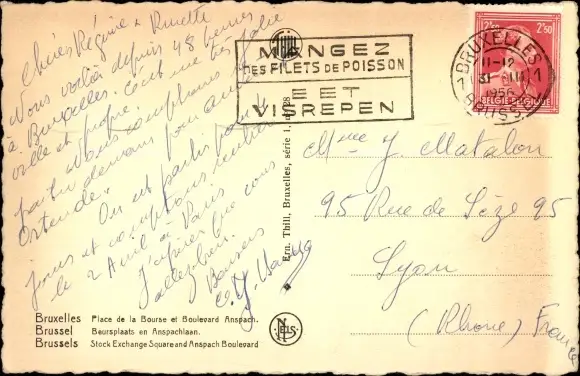 Chères Régine & Ninette
Nous voilà depuis 48 heures
à Bruxelles. C'est une très jolie
ville et propre.
Nous comptons
partir demain pour
Ostende.
On est partis pour
jours et comptons rentrer
le 2 Avril à Paris
J'espère que vous
allez bien.
Baisers
MANGEZ
DES FILETS DE POISSON
EET
VISREPEN
BRUXELLES
11-12
1956
BRUSS
1
1
2F50
2F50
BELGIE-BELGIQUE
Ern. Thill, Bruxelles, série 1, 28
Mme J. Matalon
95 Rue de Sèze 95
Lyon
(Rhone) France
NELS
Bruxelles Place de la Bourse et Boulevard Anspach.
Brussel Beursplaats en Anspachlaan.
Brussels Stock Exchange Square and Anspach Boulevard